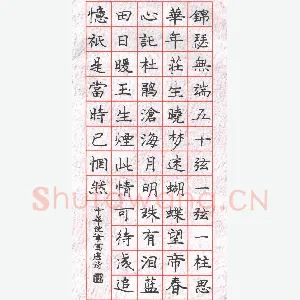 錦瑟無端五十弦一弦一柱思
華年莊生曉梦迷蝴蝶望帝春
心託杜鵑滄海月明珠有泪藍
田日暖玉生煙此情可待成追
憶祇是當時已惘然
Shufawang.CN